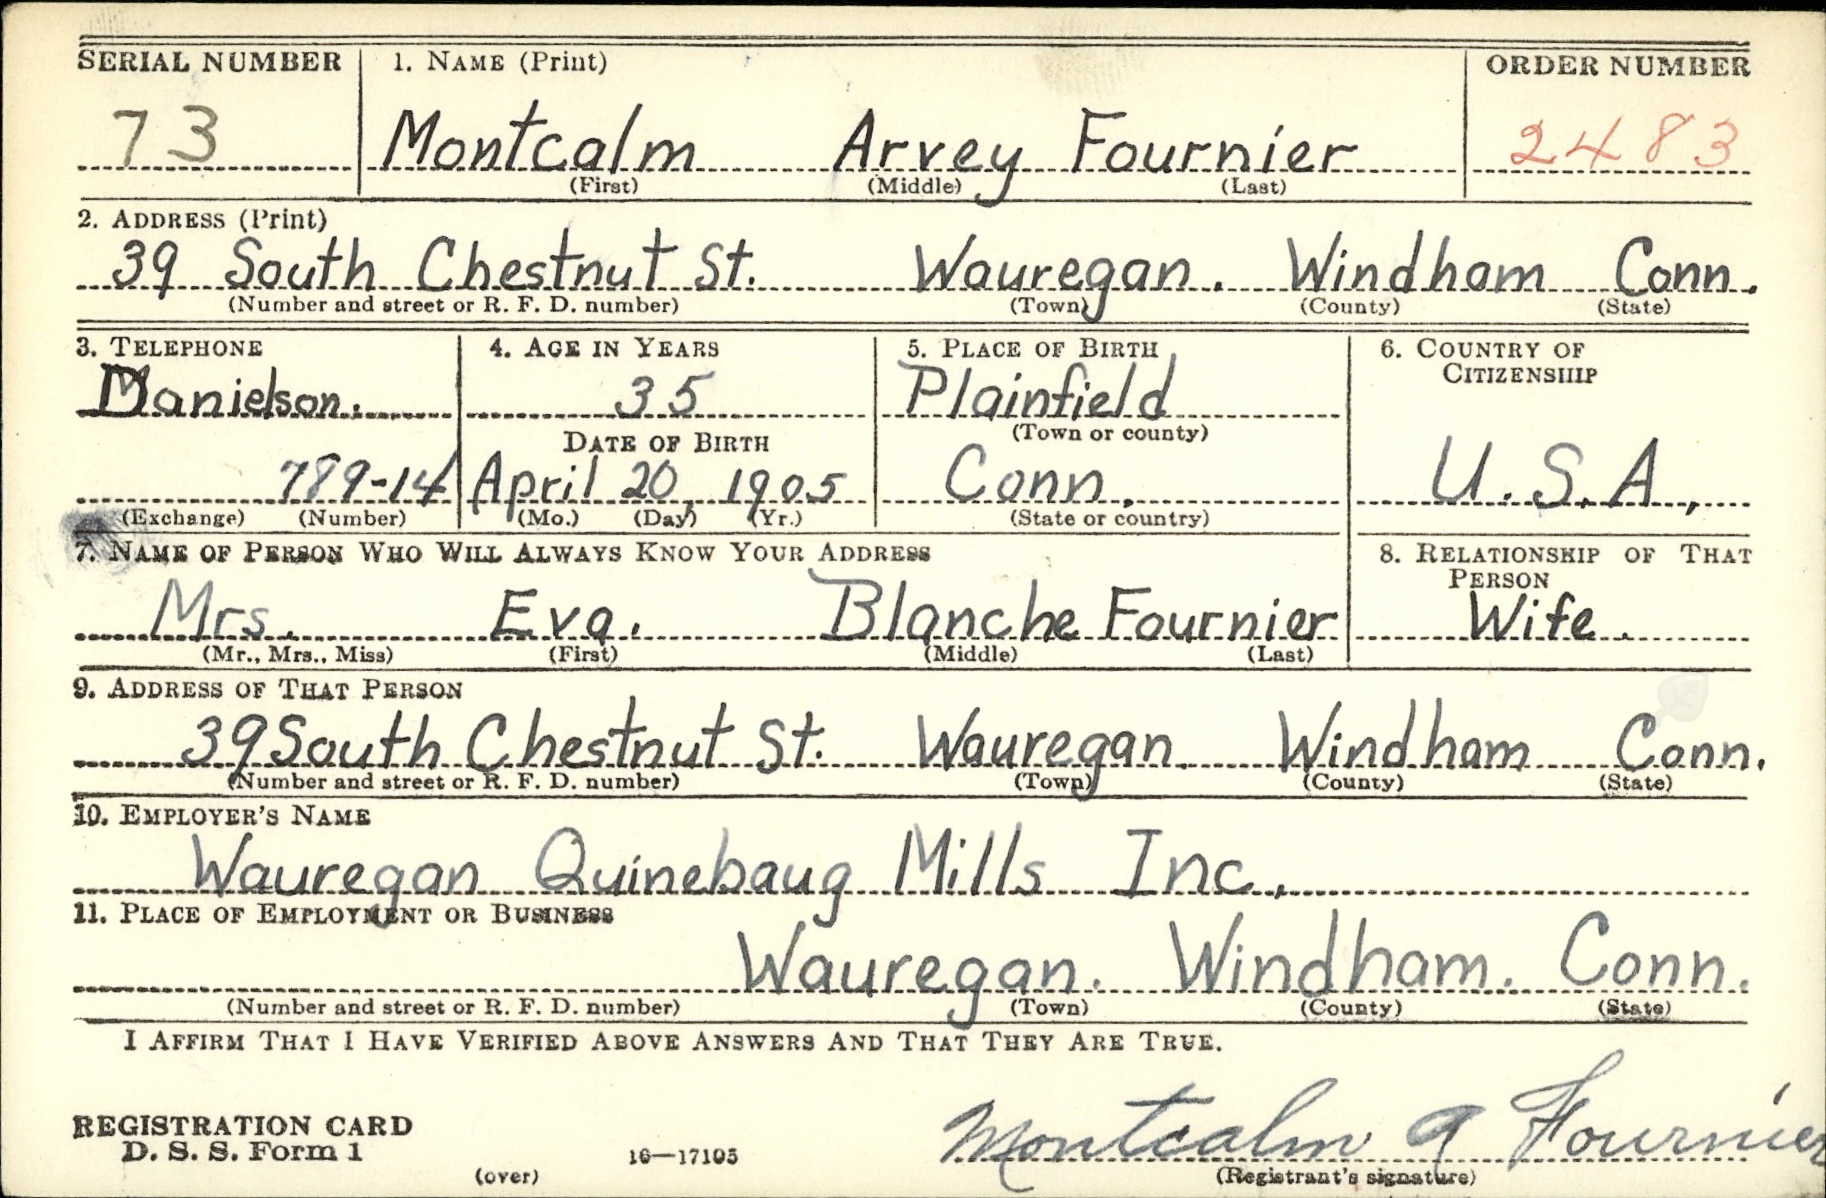 SERIAL NUMBER 1. NAME (Print) ORDER NUMBER
73 Montcalm Arvey Fournier 2483
(First) (Middle) (Last)
2. ADDRESS (Print)
39 South Chestnut St. Wauregan. Windham Conn.
(Number and street or R. F. D. number) (Town) (County) (State)
3. TELEPHONE 4. AGE IN YEARS 5. PLACE OF BIRTH 6. COUNTRY OF
CITIZENSHIP
Danielson. 35 Plainfield
DATE OF BIRTH (Town or county)
789-14 April 20, 1905 Conn. U.S.A.,
(Exchange) (Number) (Mo.) (Day) (Yr.) (State or country)
7. NAME OF PERSON WHO WILL ALWAYS KNOW YOUR ADDRESS 8. RELATIONSHIP OF THAT
PERSON
Mrs. Eva. Blanche Fournier Wife.
(Mr., Mrs., Miss) (First) (Middle) (Last)
9. ADDRESS OF THAT PERSON
39 South Chestnut St. Wauregan. Windham Conn.
(Number and street or R. F. D. number) (Town) (County) (State)
10. EMPLOYER'S NAME
Wauregan Quinebaug Mills Inc.
11. PLACE OF EMPLOYMENT OR BUSINESS
Wauregan. Windham. Conn.
(Number and street or R. F. D. number) (Town) (County) (State)
I AFFIRM THAT I HAVE VERIFIED ABOVE ANSWERS AND THAT THEY ARE TRUE.
REGISTRATION CARD
D. S. S. Form 1
(over) 16—17105
Montcalm A Fournier
(Registrant's signature)